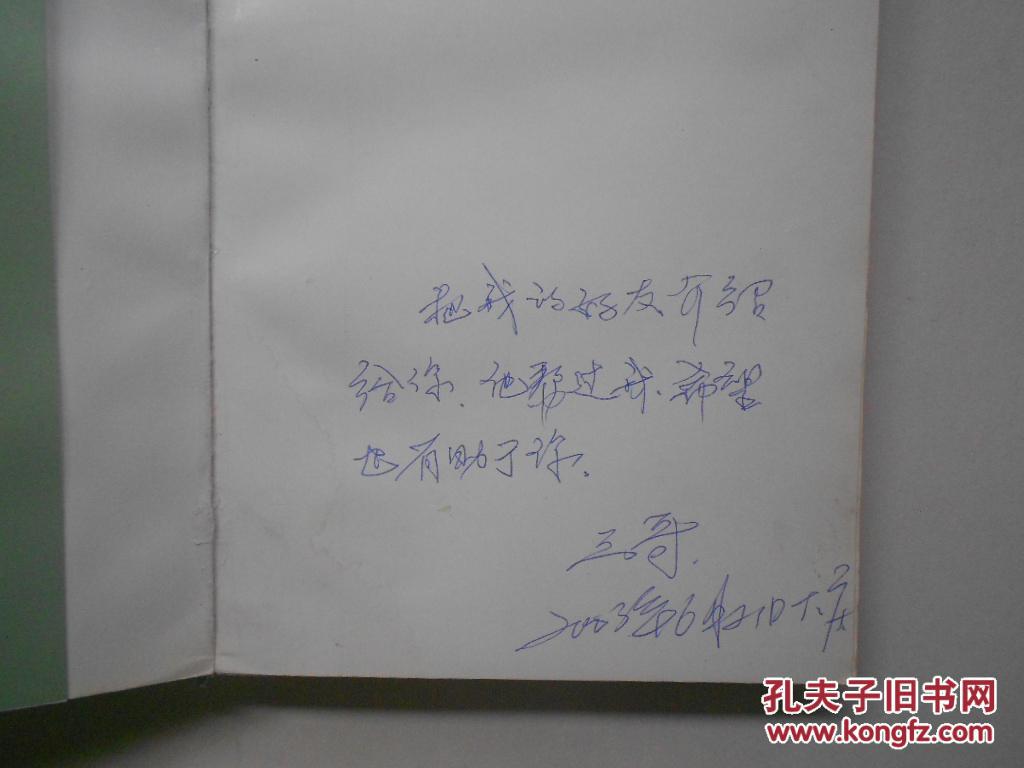 把我的好友介绍
给你、他帮过我、希望
也有助于你。
三哥.
2003年6月21日大庆
孔夫子旧书网
www.kongfz.com